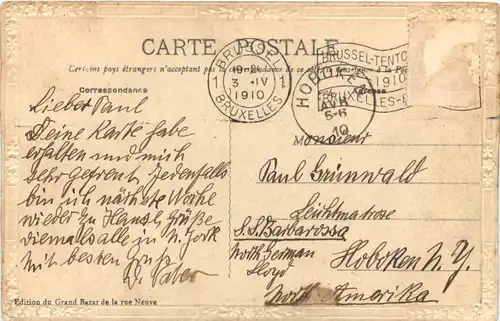 CARTE POSTALE
Certains pays étrangers n'acceptant pas la correspondance de ce côté, se renseigner à la Poste
Correspondance
BRUSSEL
19-2
1 3 · IV 1
1910
BRUXELLES
HOBOKEN
AVR
5-6
10
BRUSSEL-TENTO
1910
BRUXELLES-E
Lieber Paul
Deine Karte habe
erhalten und mich
sehr gefreut, jedenfalls
bin ich nächste Woche
wieder zu Hause, Grüße
diemals alle in N. York
Mit besten Gruß
D. Vater
Monsieur
Paul Grünwald
Leichtmatrose
S.S. Barbarossa
North German
Lloyd
Hoboken N. Y.
North Amerika
Edition du Grand Bazar de la rue Neuve